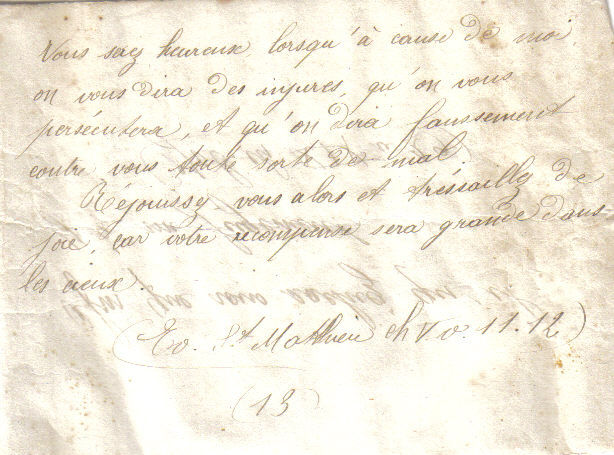 Vous serez heureux, lorsqu'à cause de moi
on vous dira des injures, qu'on vous
persécutera, et qu'on dira faussement
contre vous toute sorte de mal.
Réjouissez-vous alors et tréssaillez de
joie, car votre récompense sera grande dans
les cieux.
(Ev. St Mathieu ch V v. 11.12)
(13)